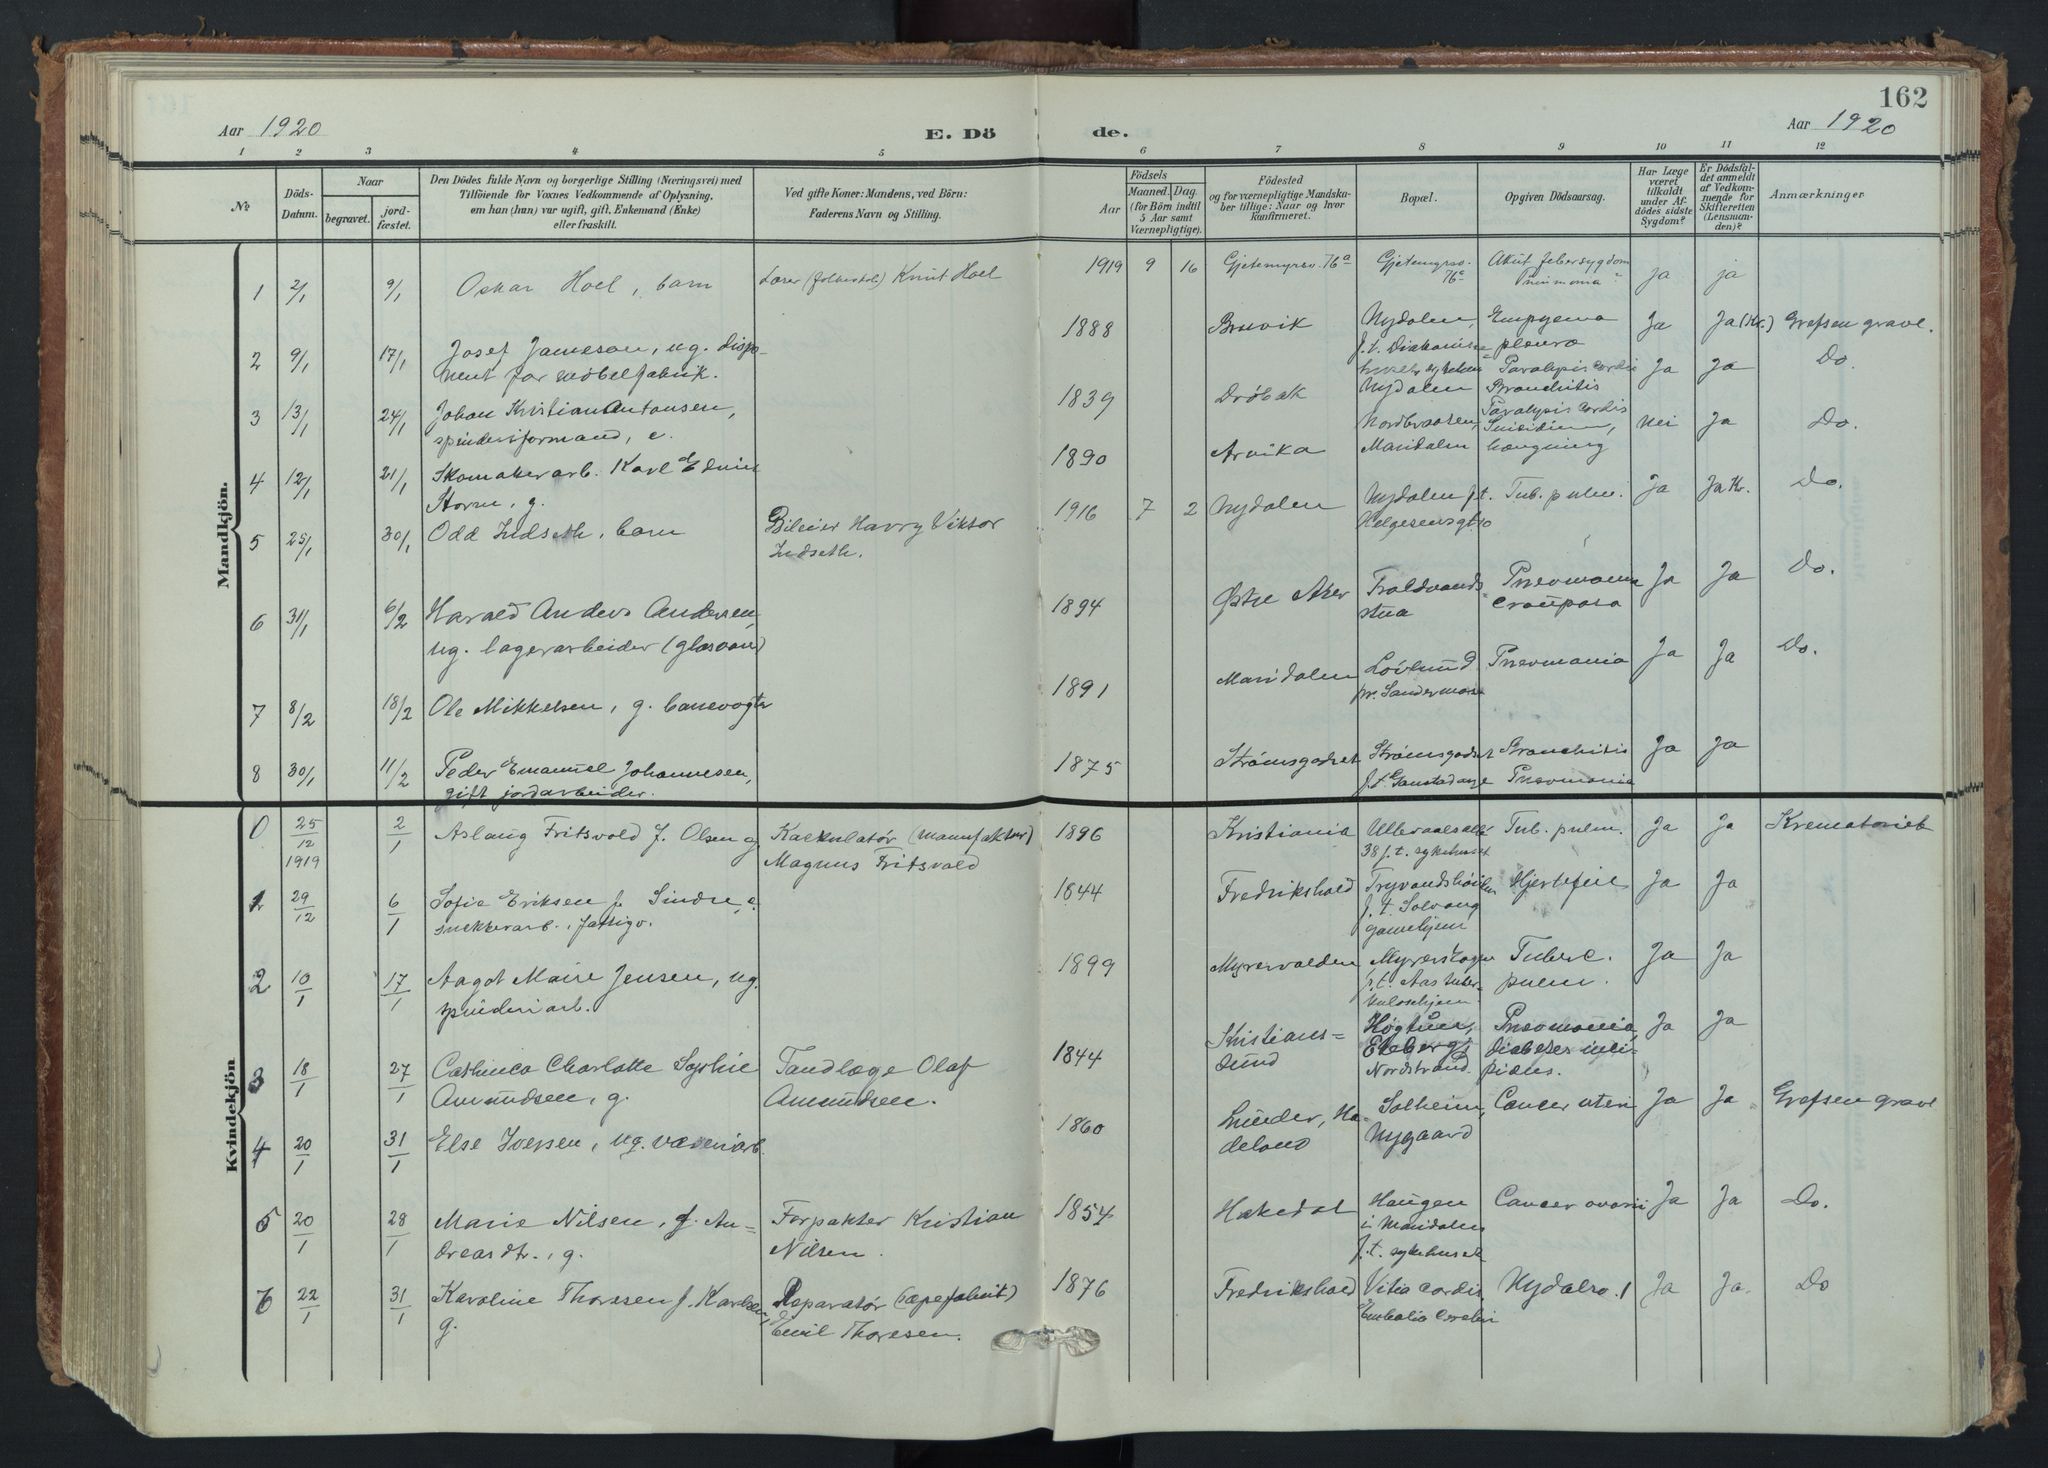 162
Aar 1920
E. Dö
de.
Aar 1920
1 2 3 4 5 6 7 8 9 10 11 12
№
Döds-
Datum.
Naar
begravet.
jord-
fæstet.
Den Dödes fulde Navn og borgerlige Stilling (Næringsvei) med
Tilföiende for Voxnes Vedkommende af Oplysning,
om han (hun) var ugift, gift, Enkemand (Enke)
eller fraskilt.
Ved gifte Koner: Mandens, ved Börn:
Faderens Navn og Stilling.
Födsels
Aar
Maaned.
Dag.
(for Börn indtil
5 Aar samt
Værnepligtige).
Födested
og for værnepligtige Mandska-
ber tillige: Naar og hvor
konfirmeret.
Bopæl.
Opgiven Dödsaarsag.
Har Læge
været
tilkaldt
under Af-
dödes sidste
Sygdom?
Er Dödsfal-
det anmeldt
af Vedkom-
mende for
Skifteretten
(Lensman-
den)?
Anmærkninger
Mandkjön.
1 2/1 9/1 Oskar Hoel, barn Lærer (folkeskole) Knut Hoel 1919 9 16 Gjetemyrsv. 76a Gjetemyrsv. Akut febersygdom Ja ja
76a Pneumonia?
2 9/1 17/1 Josef Jameson, ug. dispo- 1888 Bruvik Nydalen, Empyema Ja Ja (Kr.) Grefsen gravl.
nent for møbelfabrik. f.t. Diakonisse- pleura
huset sykehus Paralysis cordis
3 13/1 24/1 Johan Kristian Antonsen, 1839 Drøbak Nydalen Bronchitis Ja Ja Do.
spinderiformand, e. Paralysis cordis
4 12/1 21/1 Skomakerarb. Karl Edvin 1890 Arvika Nordbraaten, Suicidium, Nei Ja Do.
Storm, g. Maridalen hængning
5 25/1 30/1 Odd Indseth, barn Bileier Harry Viktor 1916 7 2 Nydalen Nydalen f.t. Tub. pulm. Ja Ja Kr. Do.
Indseth. Helgesensgt 10
6 31/1 6/2 Harald Anders Andersen, 1894 Østre Aker Troldvands- Pneomonia Ja Ja Do.
ug. lagerarbeider (glasvare) stua crouposa
7 8/2 18/2 Ole Mikkelsen, g. banevogter 1891 Maridalen Lövlund Pneomonia Ja Ja Do.
pr. Sandermosen
8 30/1 11/2 Peder Emanuel Johannesen, 1875 Strømsgodset Strømsgodset Bronchitis Ja Ja
gift jordarbeider. f.t. Gaustadveje Pneomonia
Kvindekjön
0 25/12 1919 2/1 Aslaug Fritsvold f. Olsen g. Kalkulatør (manufaktur) 1896 Kristiania Ullevaalsallé Tub. pulm. Ja Ja Krematoriet
Magnus Fritsvold 38 f.t. sykehuset
1 29/12 6/1 Sofie Eriksen f. Sindre, e. 1844 Fredrikshald Tryvandshöiden Hjertefeil Ja Ja
snekkerarb., fattigv. f.t. Solvang
gamlehjem
2 10/1 17/1 Aagot Marie Jensen, ug. 1899 Myrervolden Myrerskogen Tuberc. Ja Ja
spinderiarb. f.t. Aas tuber- pulm.
kulosehjem
3 18/1 27/1 Cathinca Charlotte Sophie Tandlæge Olaf 1844 Kristians- Høgtun, Pneomonia, Ja Ja
Amundsen, g. Amundsen. sund Ekeberg, diabetes insi-
Nordstrand. pidus.
4 20/1 31/1 Else Iversen, ug. væveriarb. 1860 Lunder, Ha- Solheim, Cancer uteri Ja Ja Grefsen gravl
deland Nygaard
5 20/1 28/1 Marie Nilsen, f. An- Forpakter Kristian 1854 Hakedal Haugen Cancer ovarii Ja Ja Do.
dreasdtr., g. Nilsen. i Maridalen
f.t. sykehuset
6 22/1 31/1 Karoline Thoresen f. Karlsen, Reparatør (sæpefabrik) 1876 Fredrikshald Vitia cordis, Nydalsv. 1 Ja Ja. Do
g. Emil Thoresen. Embolia cerebri